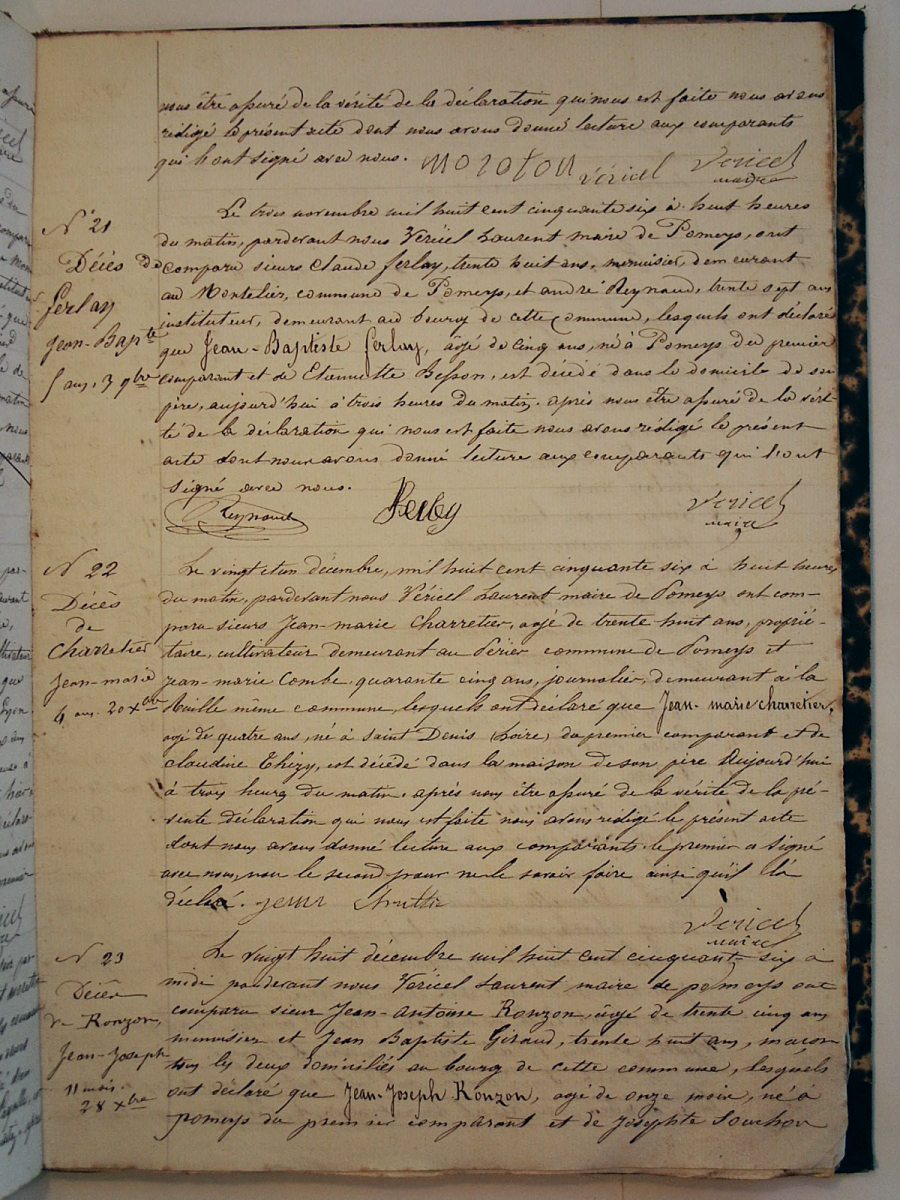 nous être assuré de la vérité de la déclaration qui nous est faite nous avons
rédigé le présent acte dont nous avons donné lecture aux comparants
qui l'ont signé avec nous. Véricel Vericel
maire
N° 21
Décès de
Ferlay
Jean-Bapte
5 ans, 3 9bre
Le trois novembre mil huit cent cinquante six à huit heures
du matin, pardevant nous Véricel Laurent maire de Pomeys, ont
comparu sieurs Claude Ferlay, trente huit ans, menuisier, demeurant
au Montelier, commune de Pomeys, et andré Reynaud, trente sept ans
instituteur, demeurant au bourg de cette commune, lesquels ont déclaré
que Jean-Baptiste Ferlay, âgé de cinq ans, né à Pomeys du premier
comparant et de Etiennette Besson, est décédé dans le domicile de son
père, aujourd'hui à trois heures du matin. après nous être assuré de la véri-
té de la déclaration qui nous est faite nous avons rédigé le présent
acte dont nous avons donné lecture aux comparants qui l'ont
signé avec nous.
Reynaud Ferlay Vericel
maire
N 22
Décès
de
Charretier
Jean-marie
4 ans. 20 xbre
Le vingt et un décembre, mil huit cent cinquante six à huit heures
du matin, pardevant nous Véricel Laurent maire de Pomeys ont com-
paru sieurs Jean-marie Charretier, agé de trente huit ans, proprié-
taire, cultivateur demeurant au Périer commune de Pomeys et
Jean-marie Combe, quarante cinq ans, journalier, demeurant à la
même commune, lesquels ont déclaré que Jean-marie charretier,
agé de quatre ans, né à Saint Denis (Loire) du premier comparant et de
Claudine Thizy, est décédé dans la maison de son père Aujourd'hui
à trois heures du matin. après nous être assuré de la vérité de la pré-
sente déclaration qui nous est faite nous avons redigé le présent acte
dont nous avons donné lecture aux comparants le premier a signé
avec nous, non le second pour ne le savoir faire ainsi qu'il l'a
déclaré. Vericel
maire
N 23
Décès
de Ronzon,
Jean-Joseph
11 mois.
28 xbre
Le vingt huit décembre mil huit cent cinquante six à
midi pardevant nous Véricel Laurent maire de pomeys ont
comparu sieur Jean-Antoine Ronzon, âgé de trente cinq ans
menuisier et Jean Baptiste Giraud, trente huit ans, maçon
tous les deux domiciliés au bourg de cette commune, lesquels
ont déclaré que Jean-Joseph Ronzon, agé de onze mois, né à
pomeys du premier comparant et de Josephte Souchon